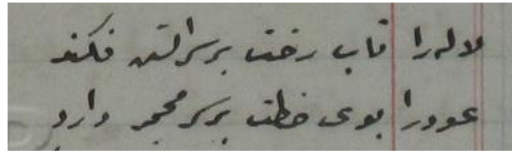 لاله را تاب رخت بر سر آتش فکند
عود را بوی خطت بر سر مجمر دارد